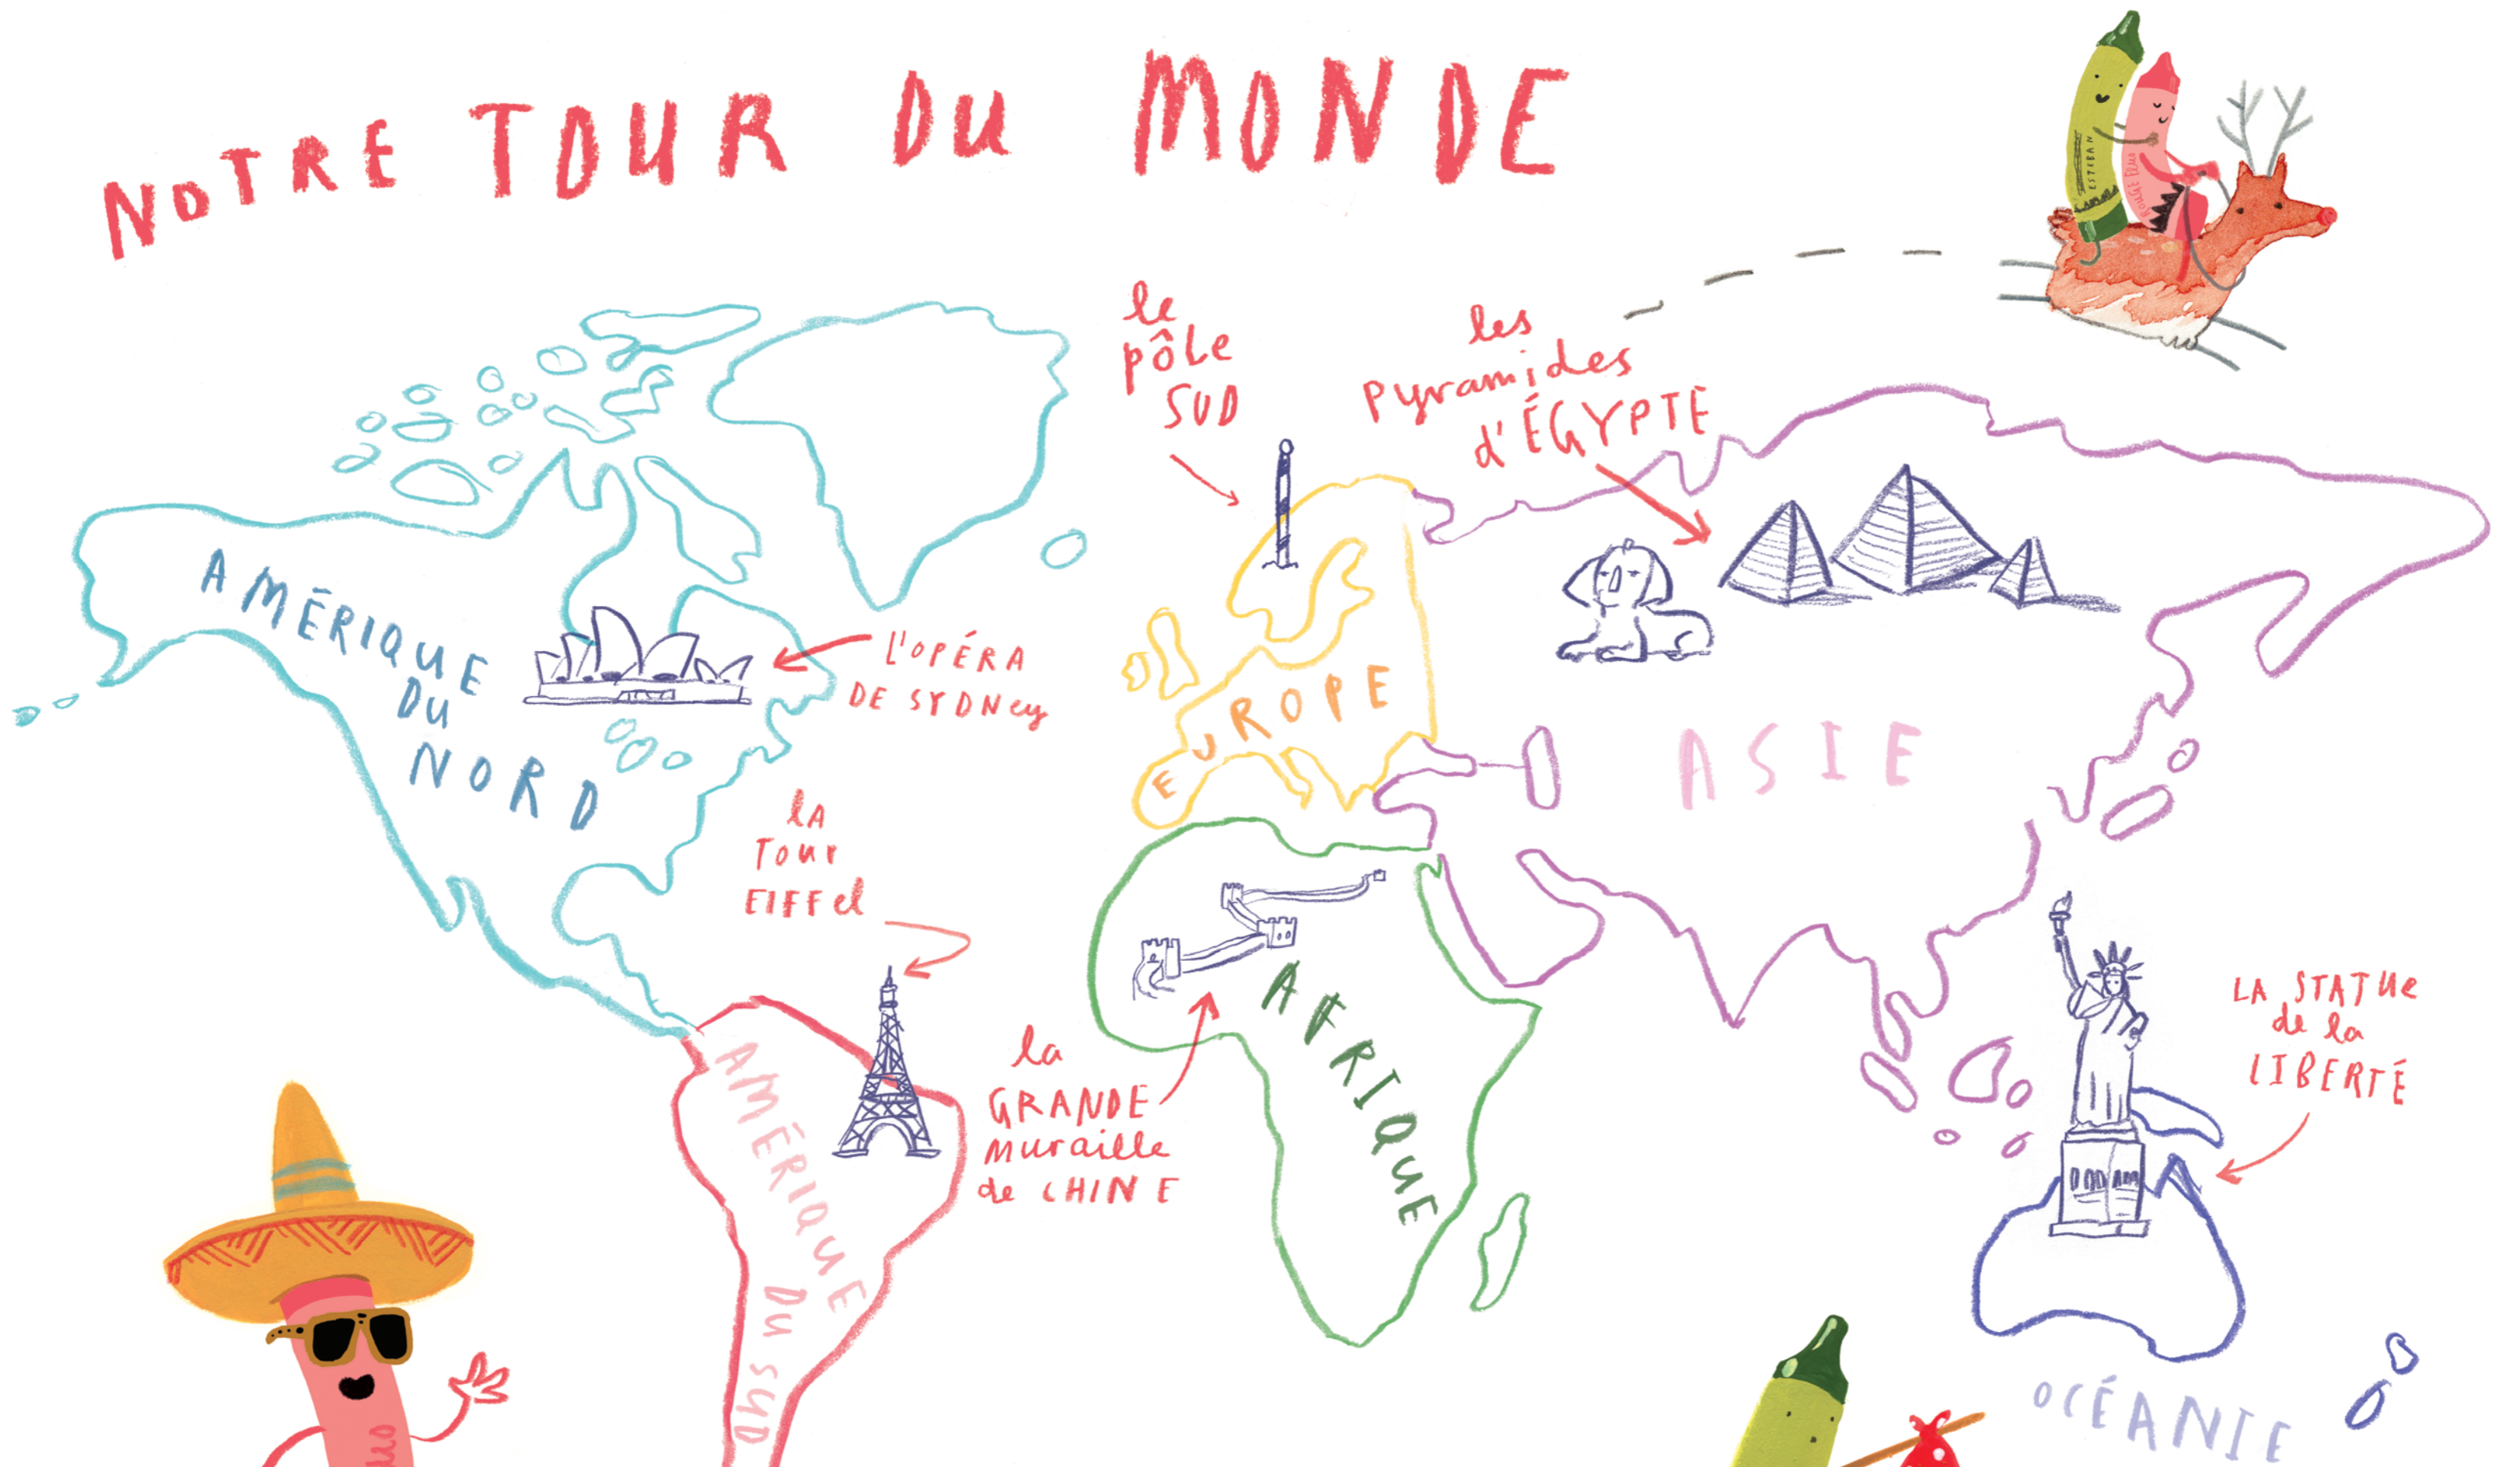 NOTRE TOUR DU MONDE
ESTEBAN
ROUGE FLUO
le
pôle
SUD
les
pyramides
d'ÉGYPTE
AMÉRIQUE
DU
NORD
L'OPÉRA
DE SYDNey
EUROPE
ASIE
lA
Tour
EIFFel
AFRIQUE
la
GRANDE
muraille
de CHINE
LA STATUe
de la
LIBERTÉ
AMÉRIQUE
DU SUD
OCÉANIE